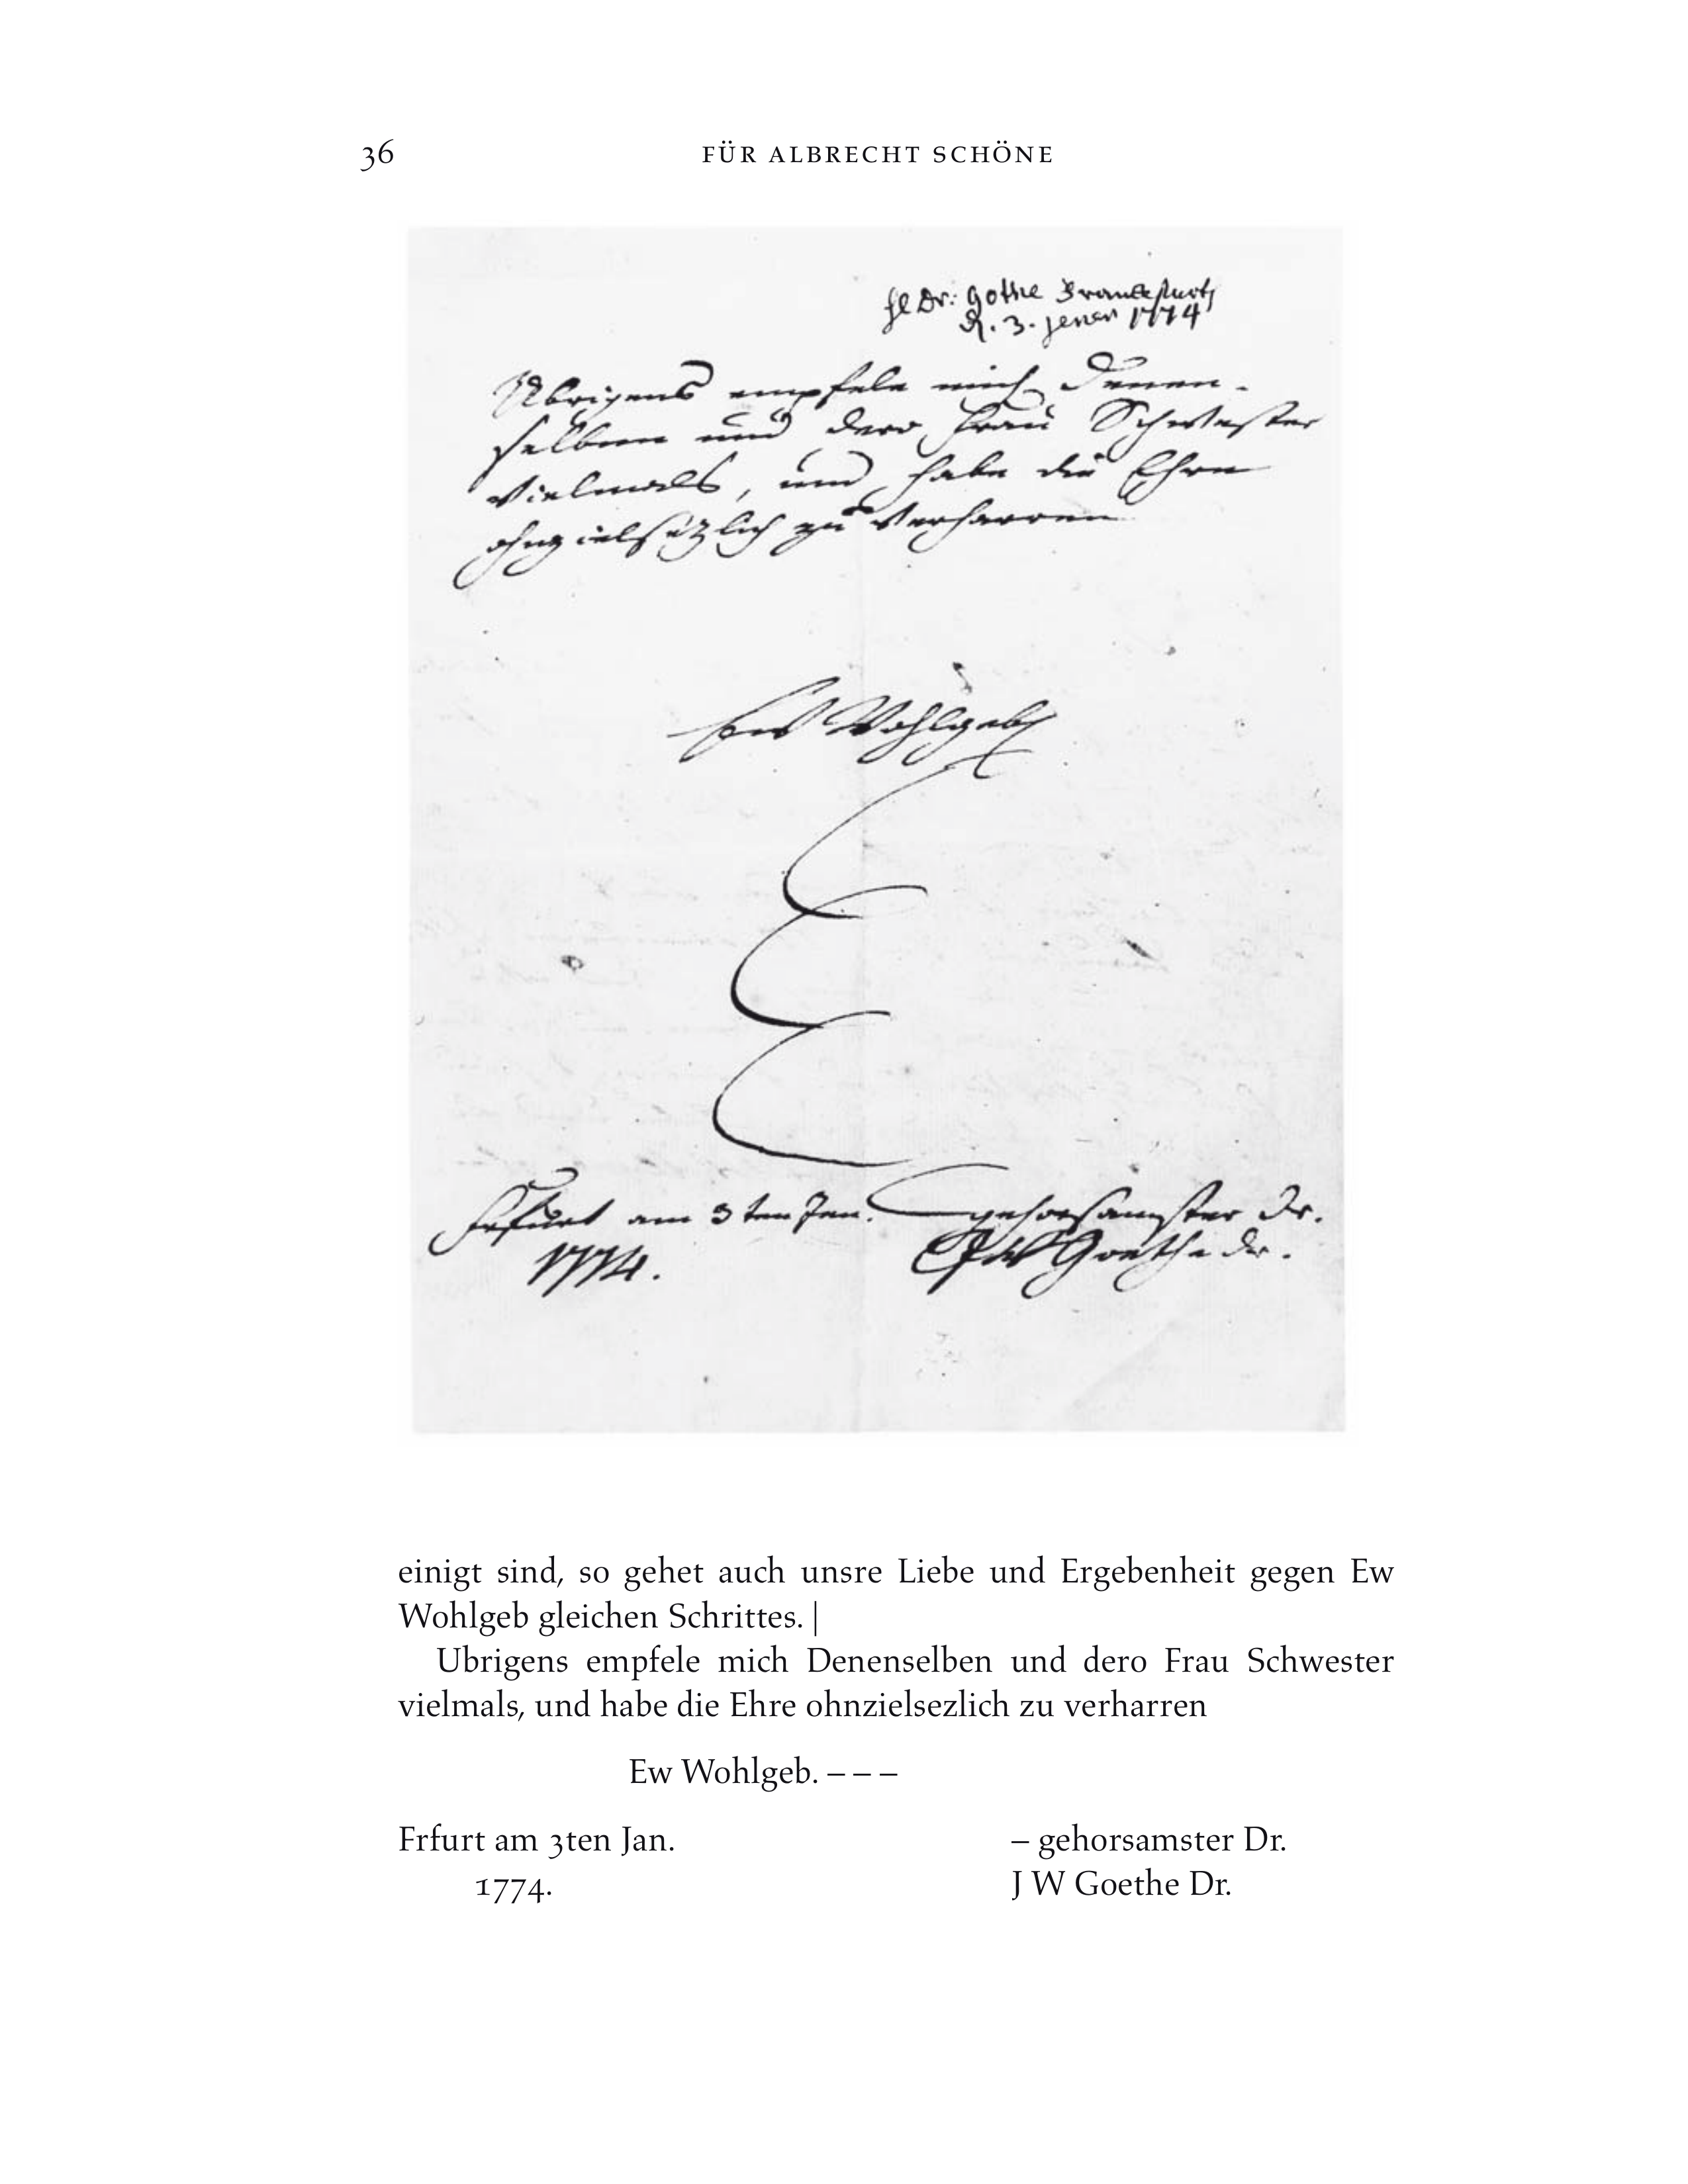 36
FÜR ALBRECHT SCHÖNE
Dr: Gothe Franckfurt
d. 3. Jener 1774
Ubrigens empfele mich Denen-
selben und dero Frau Schwester
vielmals, und habe die Ehre
ohnzielsezlich zu verharren
Ew Wohlgeb
Frfurt am 3ten Jan.
gehorsamster Dr.
1774.
JW Goethe Dr.
einigt sind, so gehet auch unsre Liebe und Ergebenheit gegen Ew
Wohlgeb gleichen Schrittes. |
Ubrigens empfele mich Denenselben und dero Frau Schwester
vielmals, und habe die Ehre ohnzielsezlich zu verharren
Ew Wohlgeb. – – –
Frfurt am 3ten Jan.
– gehorsamster Dr.
1774.
J W Goethe Dr.